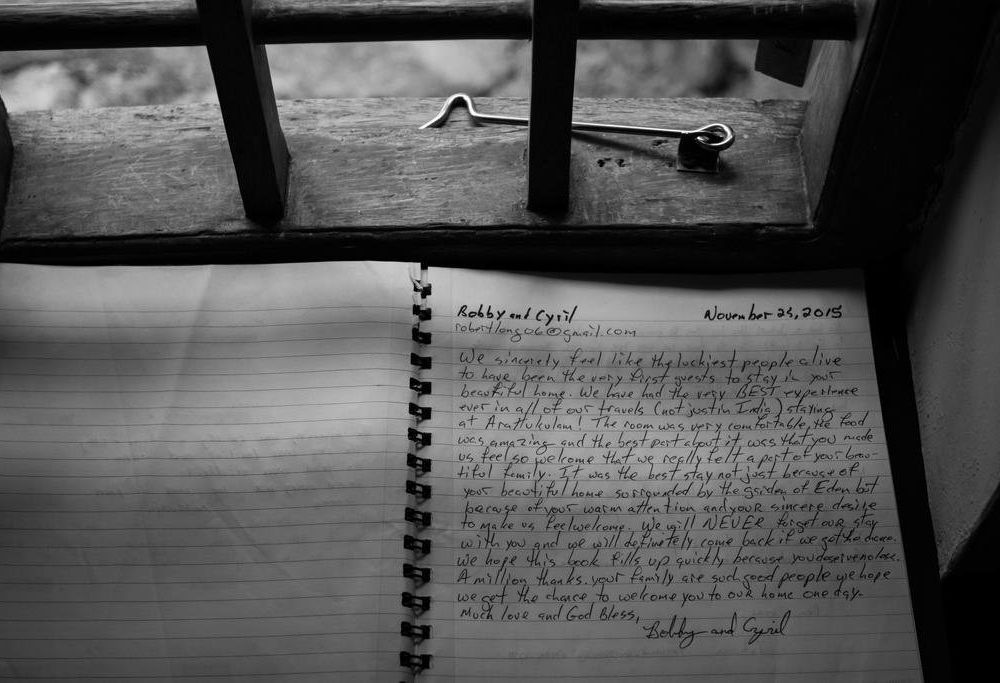 Bobby and Cyril November 23, 2015
robertlong06@gmail.com
We sincerely feel like the luckiest people alive
to have been the very first guests to stay in your
beautiful home. We have had the very BEST experience
ever in all of our travels (not just in India) staying
at Arattukulam! The room was very comfortable, the food
was amazing and the best part about it was that you made
us feel so welcome that we really felt a part of your beau-
tiful family. It was the best stay not just because of
your beautiful home sorrounded by the garden of Eden but
because of your warm attention and your sincere desire
to make us feel welcome. We will NEVER forget our stay
with you and we will definetely come back if we get the chance.
We hope this book fills up quickly because you deserve no less.
A million thanks. your family are such good people we hope
we get the chance to welcome you to our home one day.
Much love and God Bless,
Bobby and Cyril